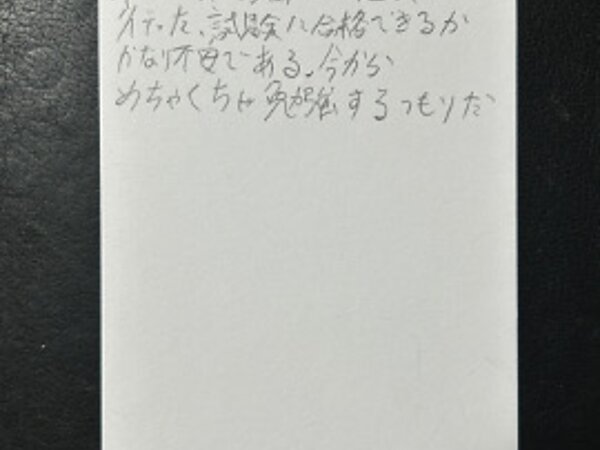 行った、試験に合格できるか
かなり不安である。今から
めちゃくちゃ勉強するつもりだ